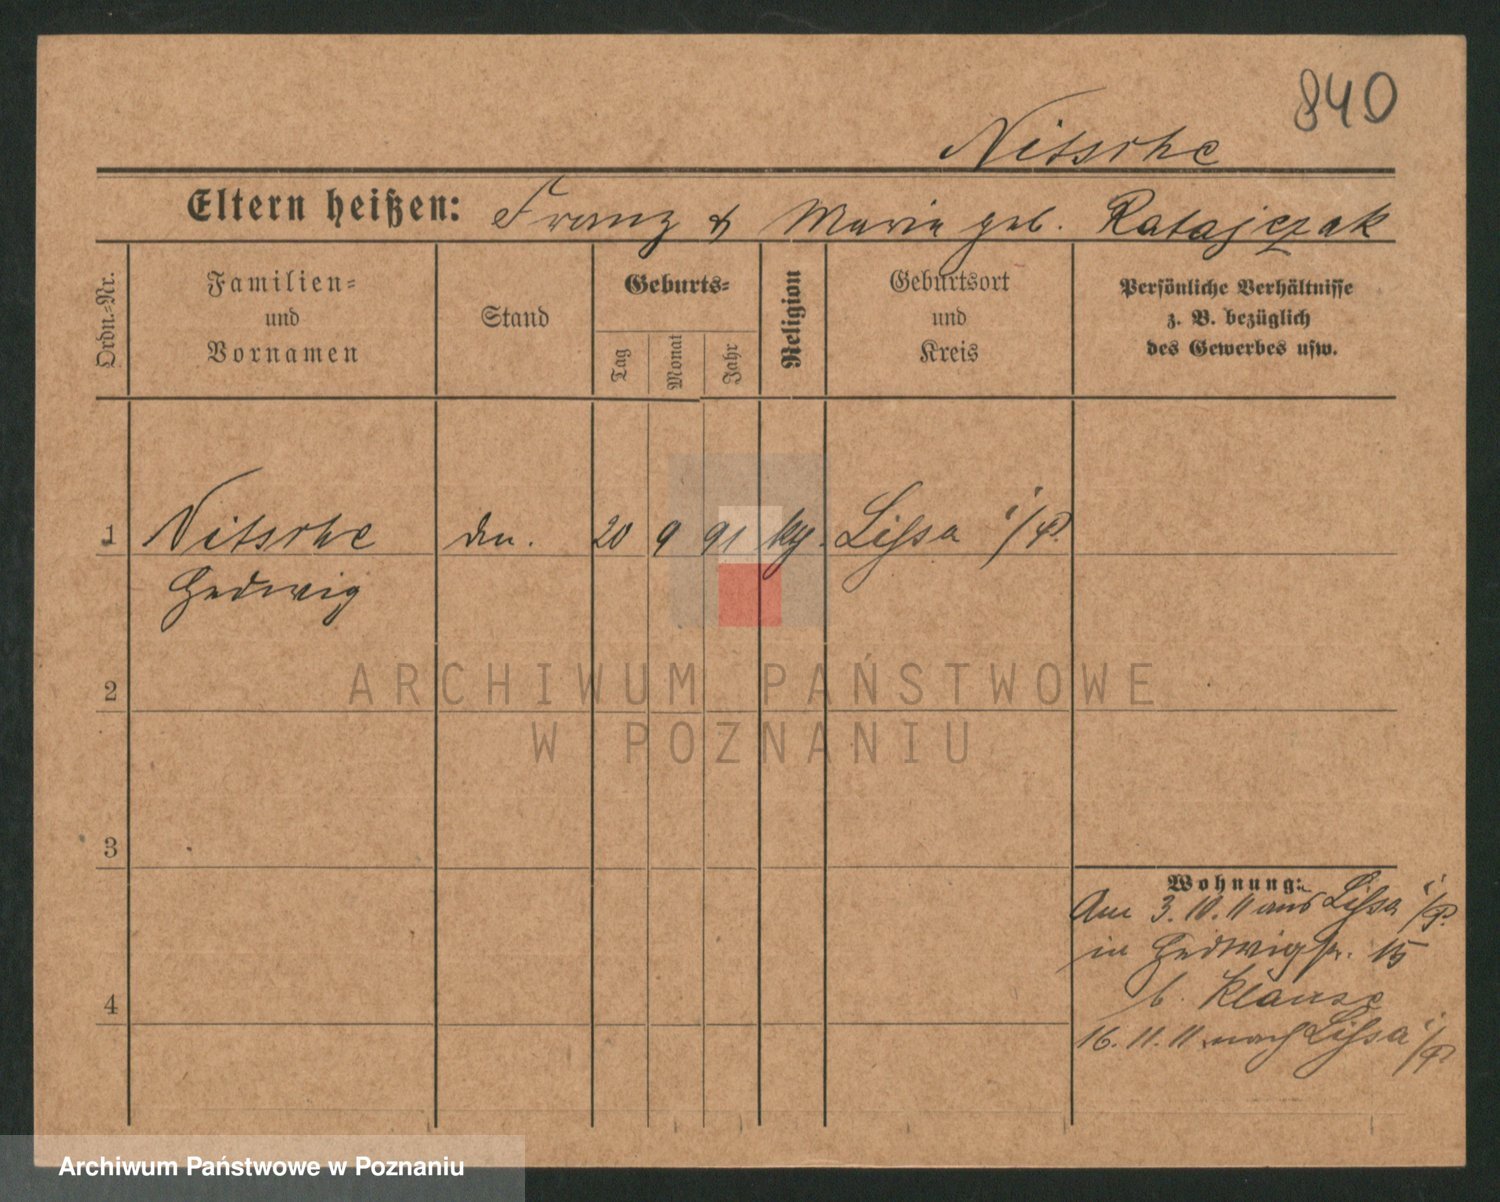 840
Nitsche
Eltern heißen: Franz & Marie geb. Ratajczak
Ordn.-Nr.
Familien-
und
Vornamen
Stand
Geburts-
Tag
Monat
Jahr
Religion
Geburtsort
und
Kreis
Persönliche Verhältnisse
z. B. bezüglich
des Gewerbes usw.
1 Nitsche 20 9 91 Lissa i/P.
Hedwig
2
3
4
Wohnung:
Am 3.10.11 aus Lissa i/P.
in Hedwigstr. 15
b. Klause
16.11.11 nach Lissa i/P.
ARCHIWUM PAŃSTWOWE
W POZNANIU
Archiwum Państwowe w Poznaniu